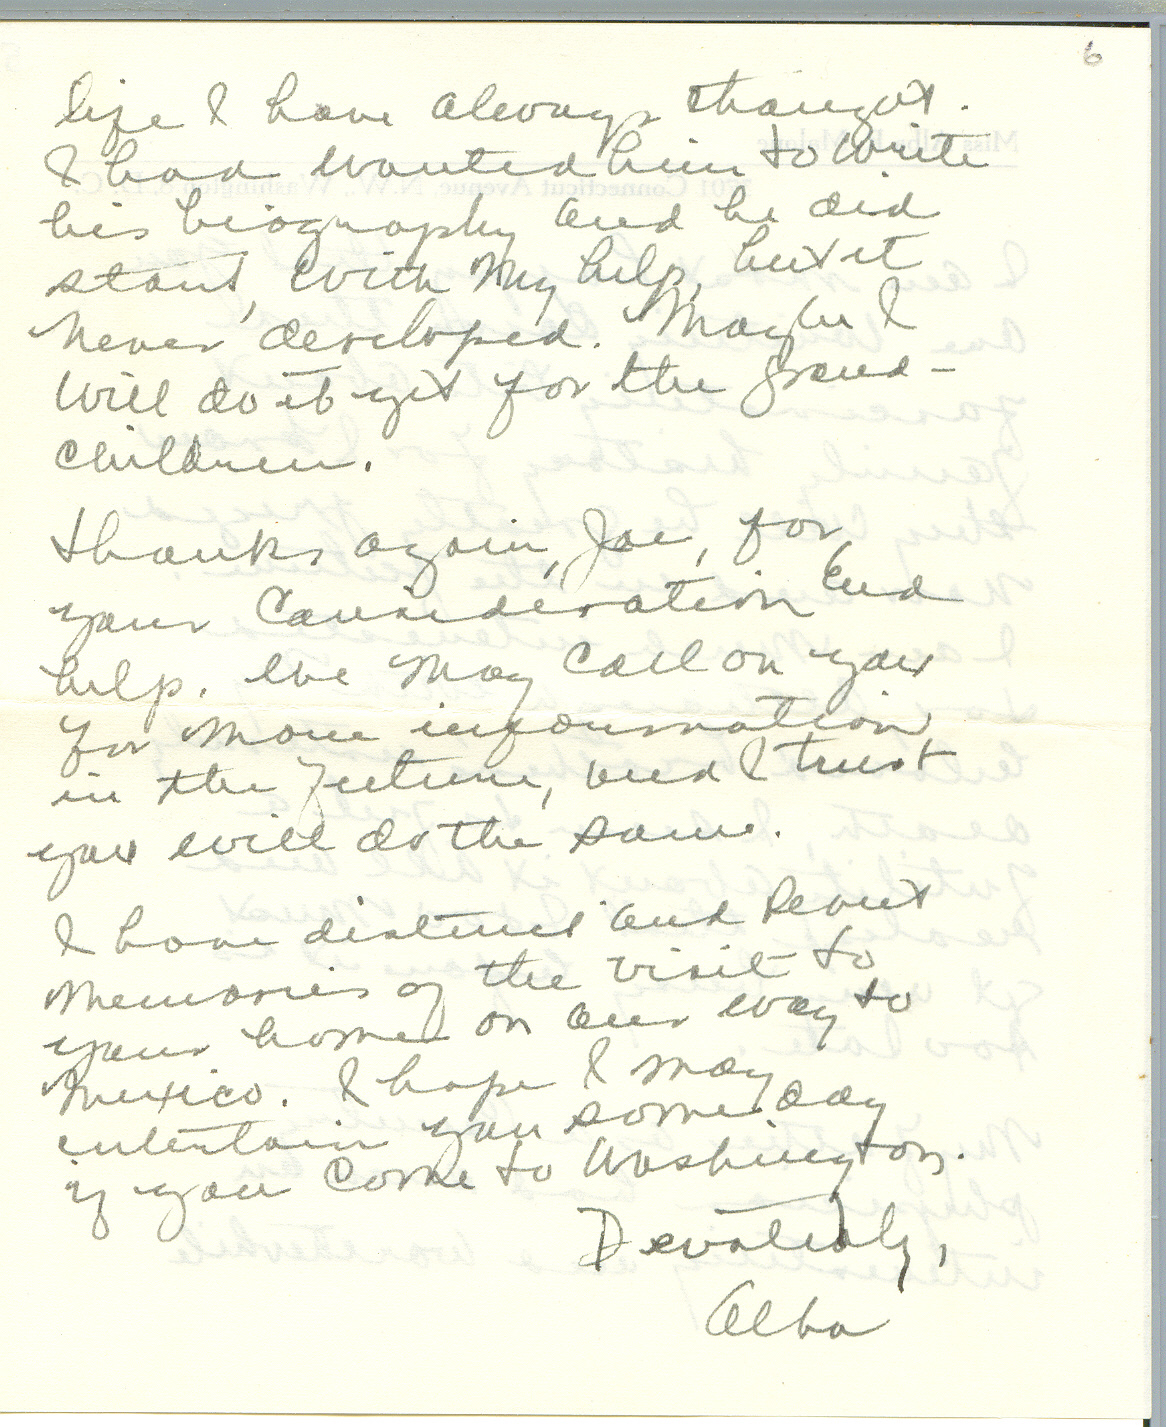 6
life I have always thought.
I had wanted him to write
his biography and he did
start, with my help, but it
never developed. Maybe I
will do it yet for the grand-
children.
Thanks again, Joe, for
your consideration and
help. We may call on you
for more information
in the future, and I trust
you will do the same.
I have distinct and
memories of the visit to
your home on our way to
Mexico. I hope I may
entertain you some day
if you come to Washington.
Devotedly,
Alba